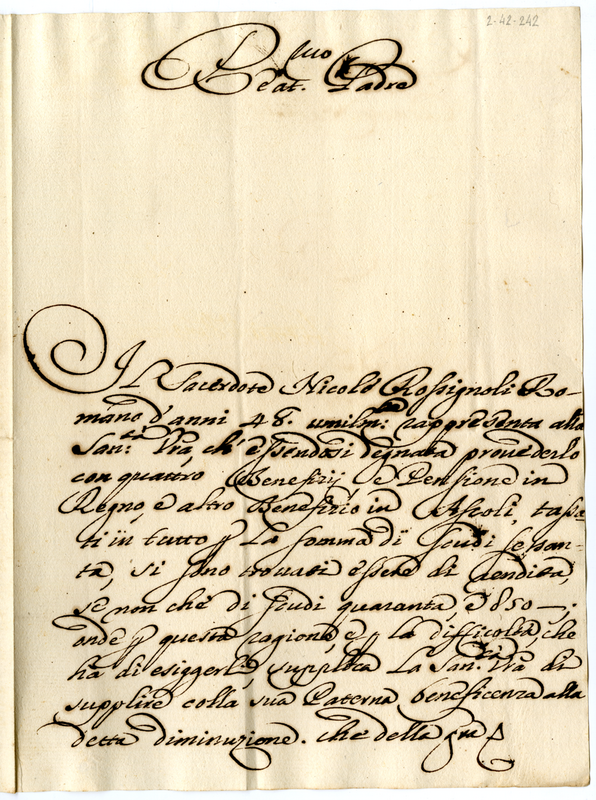 2-42-242
Bea.mo
Padre
Il Sacerdote Nicolò Rossignoli Ro-
mano d'anni 48. umilm.te rappresenta alla
San.tà Vrã, ch'essendosi degnata provederlo
con quattro Benefizij, e Pensione in
Regno, e altro Benefizio in Ascoli, tassa-
ti in tutto ꝑ la somma di scudi sessan-
ta, si sono trovati essere di rendita,
se non che di scudi quaranta, e 850 —;
onde ꝑ questa ragione, e ꝑ la difficoltà che
ha di esiggerli, supplica la San.tà Vrã di
supplire colla sua Paterna beneficenza alla
detta diminuzione. che della gra